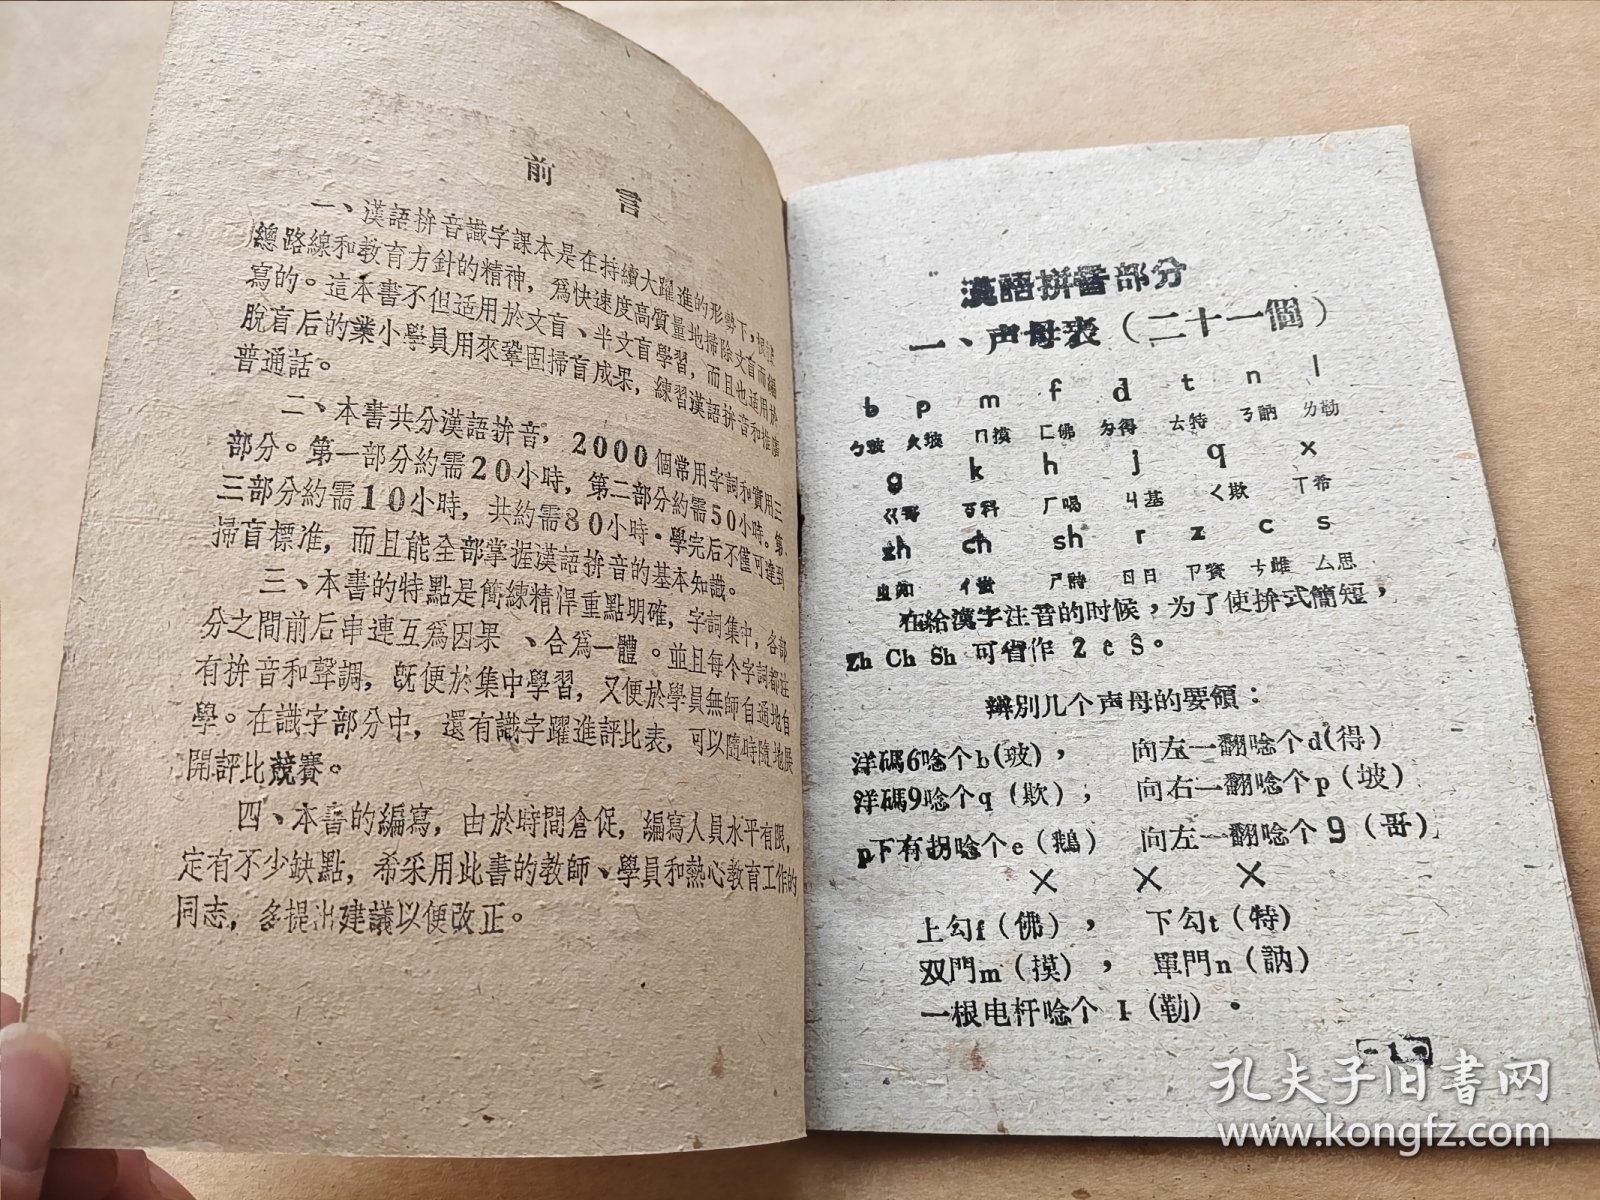 前言
一、漢語拚音識字課本是在持續大躍進的形勢下，根據
總路線和教育方針的精神，爲快速度高質量地掃除文盲而編
寫的。這本書不但适用於文盲、半文盲學習，而且也适用於
脫盲后的業小學員用來鞏固掃盲成果，練習漢語拚音和推廣
普通話。
二、本書共分漢語拚音，2000個常用字詞和實用三
部分。第一部分約需20小時，第二部分約需50小時。第
三部分約需10小時，共約需80小時·學完后不僅可達到
掃盲標准，而且能全部掌握漢語拚音的基本知識。
三、本書的特點是簡練精悍重點明確，字詞集中，各部
分之間前后串連互爲因果、合爲一體。並且每个字詞都注
有拚音和聲調，旣便於集中學習，又便於學員無師自通地自
學。在識字部分中，還有識字躍進評比表，可以隨時隨地展
開評比競賽。
四、本書的編寫，由於時間倉促，編寫人員水平有限，
定有不少缺點，希采用此書的教師、學員和熱心教育工作的
同志，多提出建議以便改正。
漢語拼音部分
一、声母表（二十一個）
b p m f d t n l
ㄅ玻 ㄆ坡 ㄇ摸 ㄈ佛 ㄉ得 ㄊ特 ㄋ訥 ㄌ勒
g k h j q x
ㄍ哥 ㄎ科 ㄏ喝 ㄐ基 ㄑ欺 ㄒ希
zh ch sh r z c s
ㄓ知 ㄔ蚩 ㄕ詩 ㄖ日 ㄗ資 ㄘ雌 ㄙ思
在給漢字注音的时候，为了使拚式簡短，
Zh Ch Sh 可省作 ẑ ĉ ŝ。
辨別几个声母的要領：
洋碼6唸个b(玻)， 向左一翻唸个d(得)
洋碼9唸个q（欺）， 向右一翻唸个p（坡）
p下有拐唸个e（鵝） 向左一翻唸个9（哥）
× × ×
上勾f（佛）， 下勾t（特）
双門m（摸）， 單門n（訥）
一根电杆唸个 l（勒）。
-1-
孔夫子旧書网
www.kongfz.com